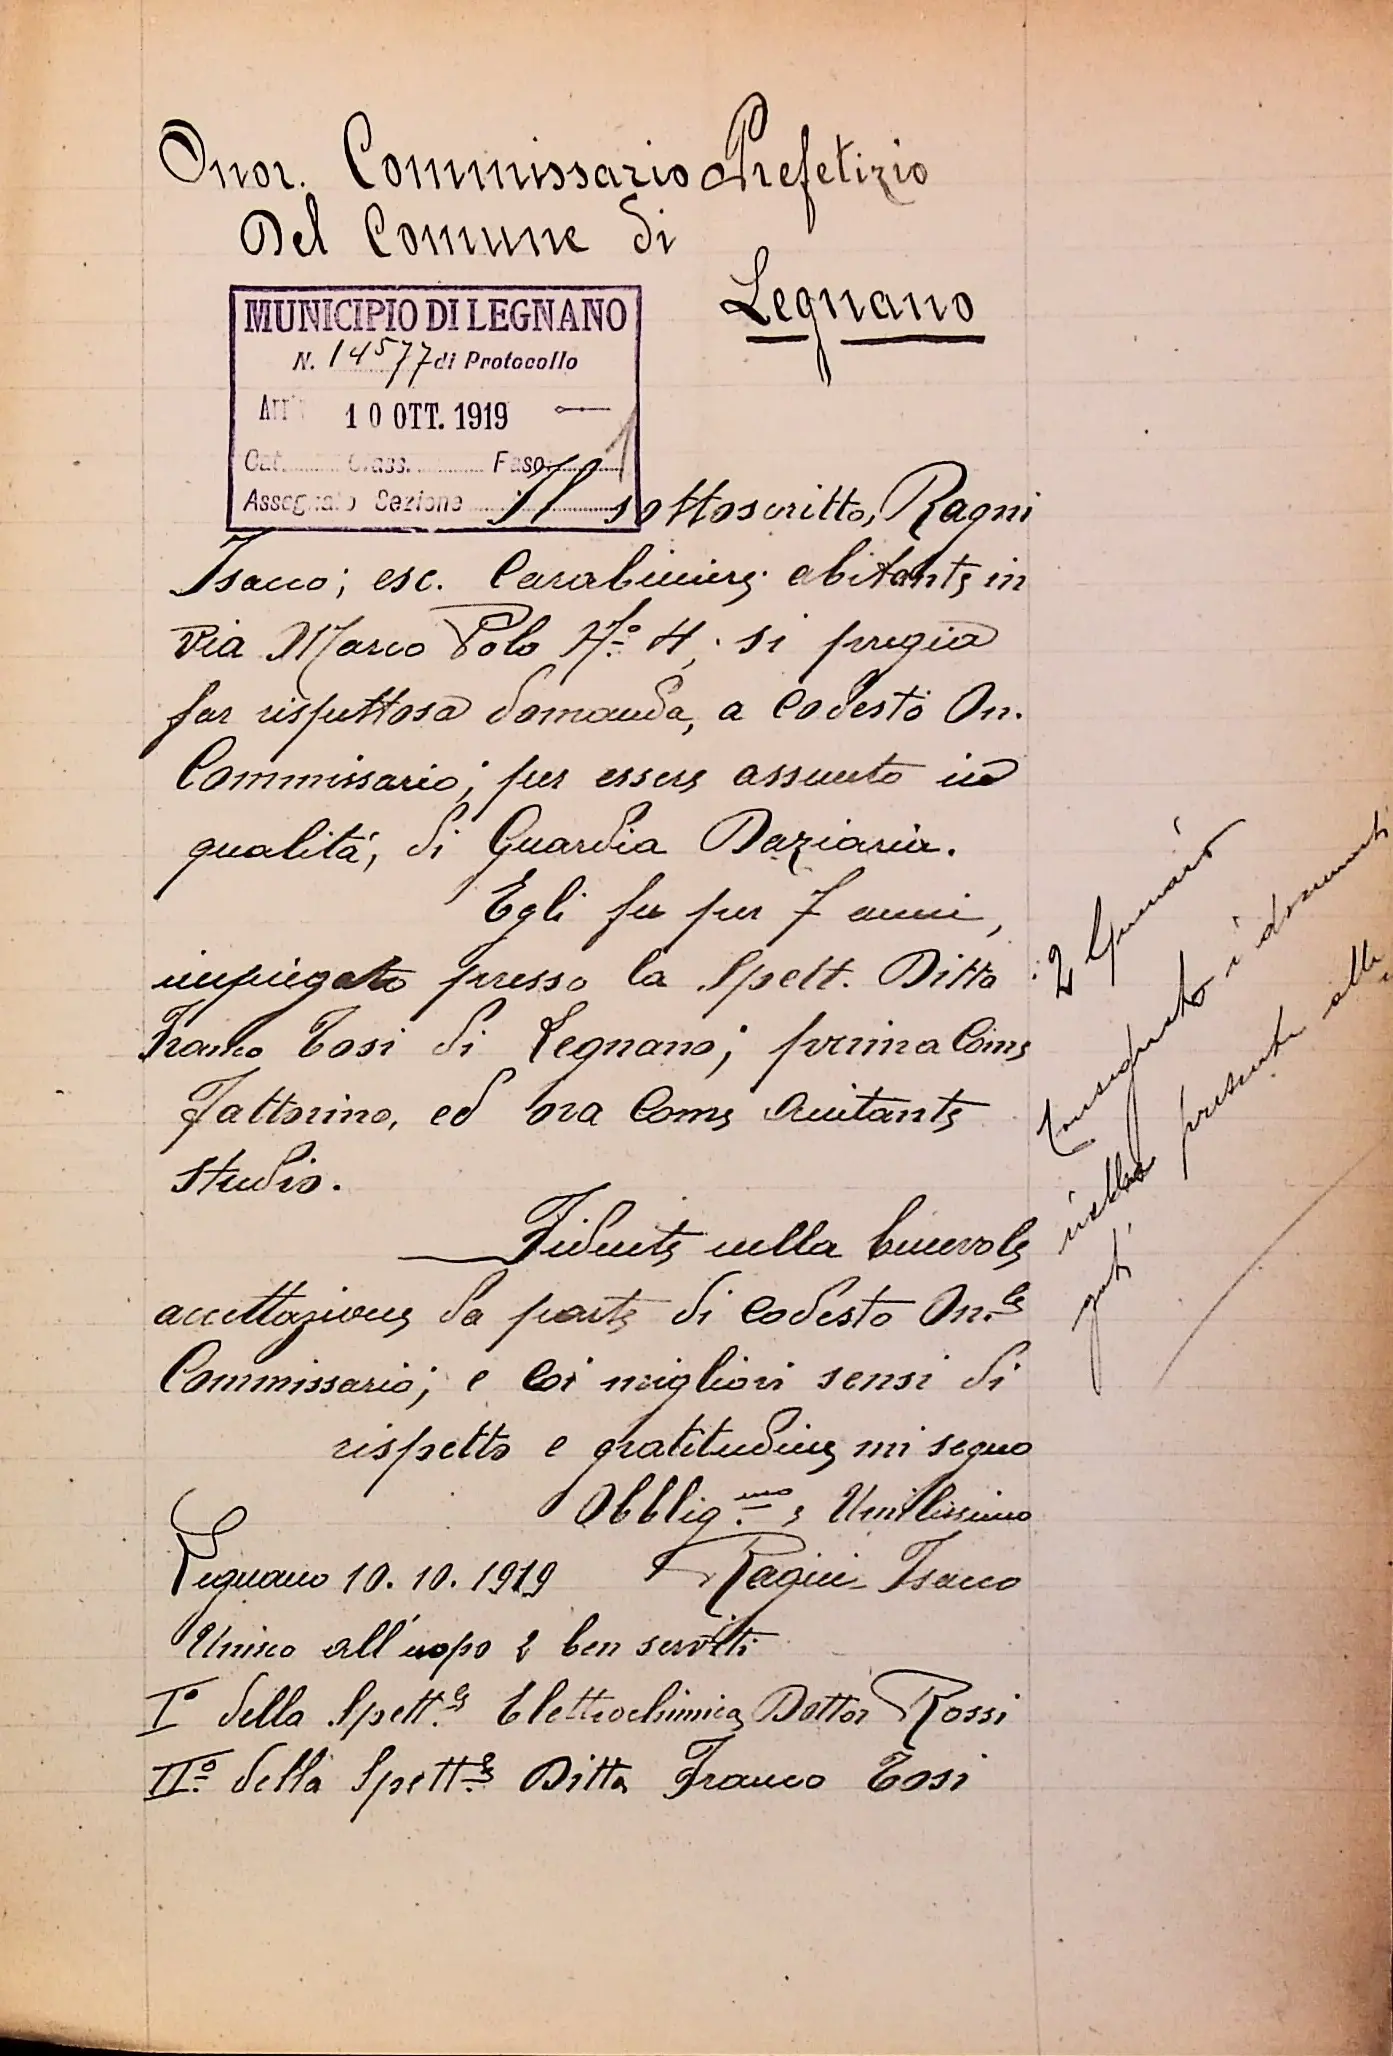 Onor. Commissario Prefetizio
Del Comune di
Legnano
MUNICIPIO DI LEGNANO
N. 14577 di Protocollo
Arr 10 OTT. 1919
Cat. Class. Fasc.
Assegnato Sezione
Il sottoscritto, Ragni
Isacco; esc. Carabiniere abitante in
via Marco Polo No. 4, si pregia
far rispettosa domanda, a codesto On.
Commissario; per essere assunto in
qualitá, di Guardia Daziaria.
Egli fu per 7 anni,
impiegato presso la Spett. Ditta
Franco Tosi di Legnano; prima Come
Fattorino, ed ora Come Aiutante
studio.
Fidente nella benevole
accettazione da parte di codesto On.le
Commissario; e coi migliori sensi di
rispetto e gratitudine mi segno
Obblig.mo e Umilissimo
Legnano 10. 10. 1919 Ragni Isacco
Unisco all'uopo 2 ben serviti
Io della Spett.le Elettrochimica Dottor Rossi
IIo. della Spett.le Ditta Franco Tosi
2 Gennaio
Consegnato i documenti
presente alle